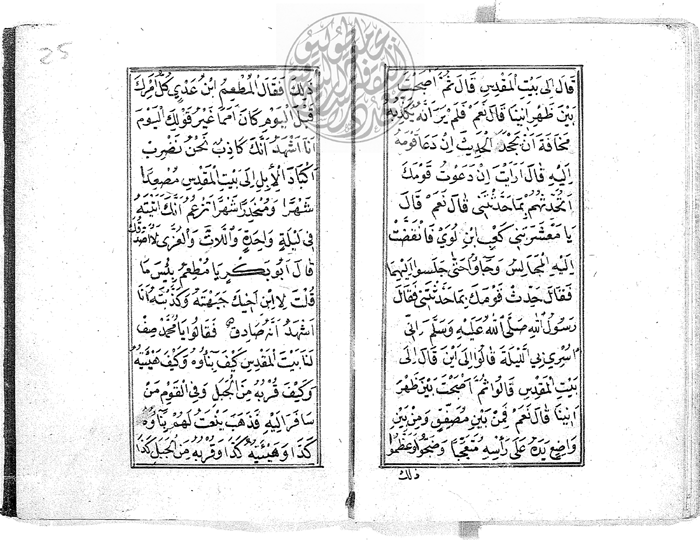 25
قال الى بيت المقدس قال ثم اصبحت
بين ظهرانينا قال نعم فلم ير انه يكذبه
مخافة ان يجحد الحديث ان دعا قومه
اليه قال ارايت ان دعوت قومك
اتحدثهم بما حدثتني قال نعم قال
يا معشر بني كعب ابن لوي فانفضت
اليه المجالس وجاوا حتى جلسوا اليهما
فقال حدث قومك بما حدثتني فقال
رسول الله صلى الله عليه وسلم اني
اسري بي الليلة قالوا الى اين قال الى
بيت المقدس قالوا ثم اصبحت بين ظهر
انينا قال نعم فمن بين مصفق ومن بين
واضع يده على راسه متعجبا وضجوا وعظموا
ذلك
ذلك فقال المطعم ابن عدي كل امرك
قبل اليوم كان امما غير قولك اليوم
انا اشهد انك كاذب نحن نضرب
اكباد الابل الى بيت المقدس مصعدا
شهرا ومنحدرا شهرا تزعم انك اتيته
في ليلة واحدة واللات والعزى لا اصدقك
قال ابو بكر يا مطعم بئس ما
قلت لابن اخيك جبهته وكذبته انا
اشهد انه صادق فقالوا يا محمد صف
لنا بيت المقدس كيف بناوه وكيف هيئته
وكيف قربه من الجبل وفي القوم من
سافر اليه فذهب ينعت لهم بناوه
كذا وهيئته كذا وقربه من الجبل كذا